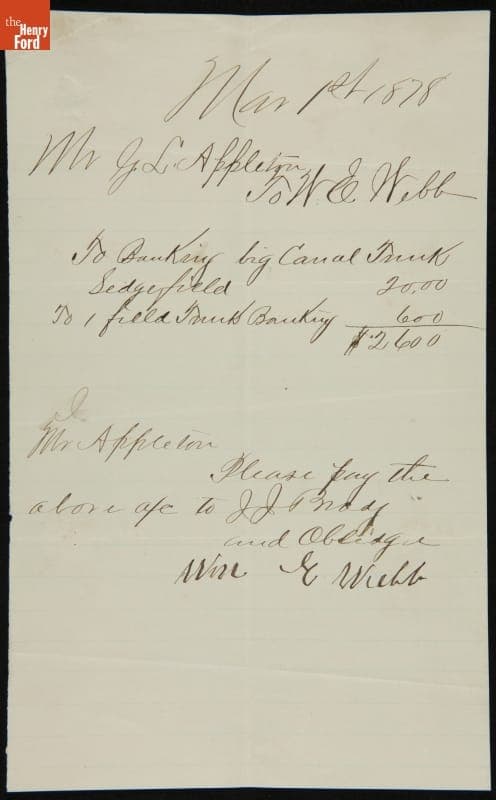 the
Henry
Ford
Mar 1st 1878
Mr J. L. Appleton
To W. E. Webb
To Banking big Canal Trunk
Sedgefield 20.00
To 1 field Trunk Banking 600
$2600
Mr Appleton
Please pay the
above a/c to J J
and Oblidge
Wm E Webb